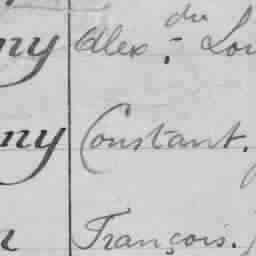 ny Alex. dre Lou
ny Constant.
n François.